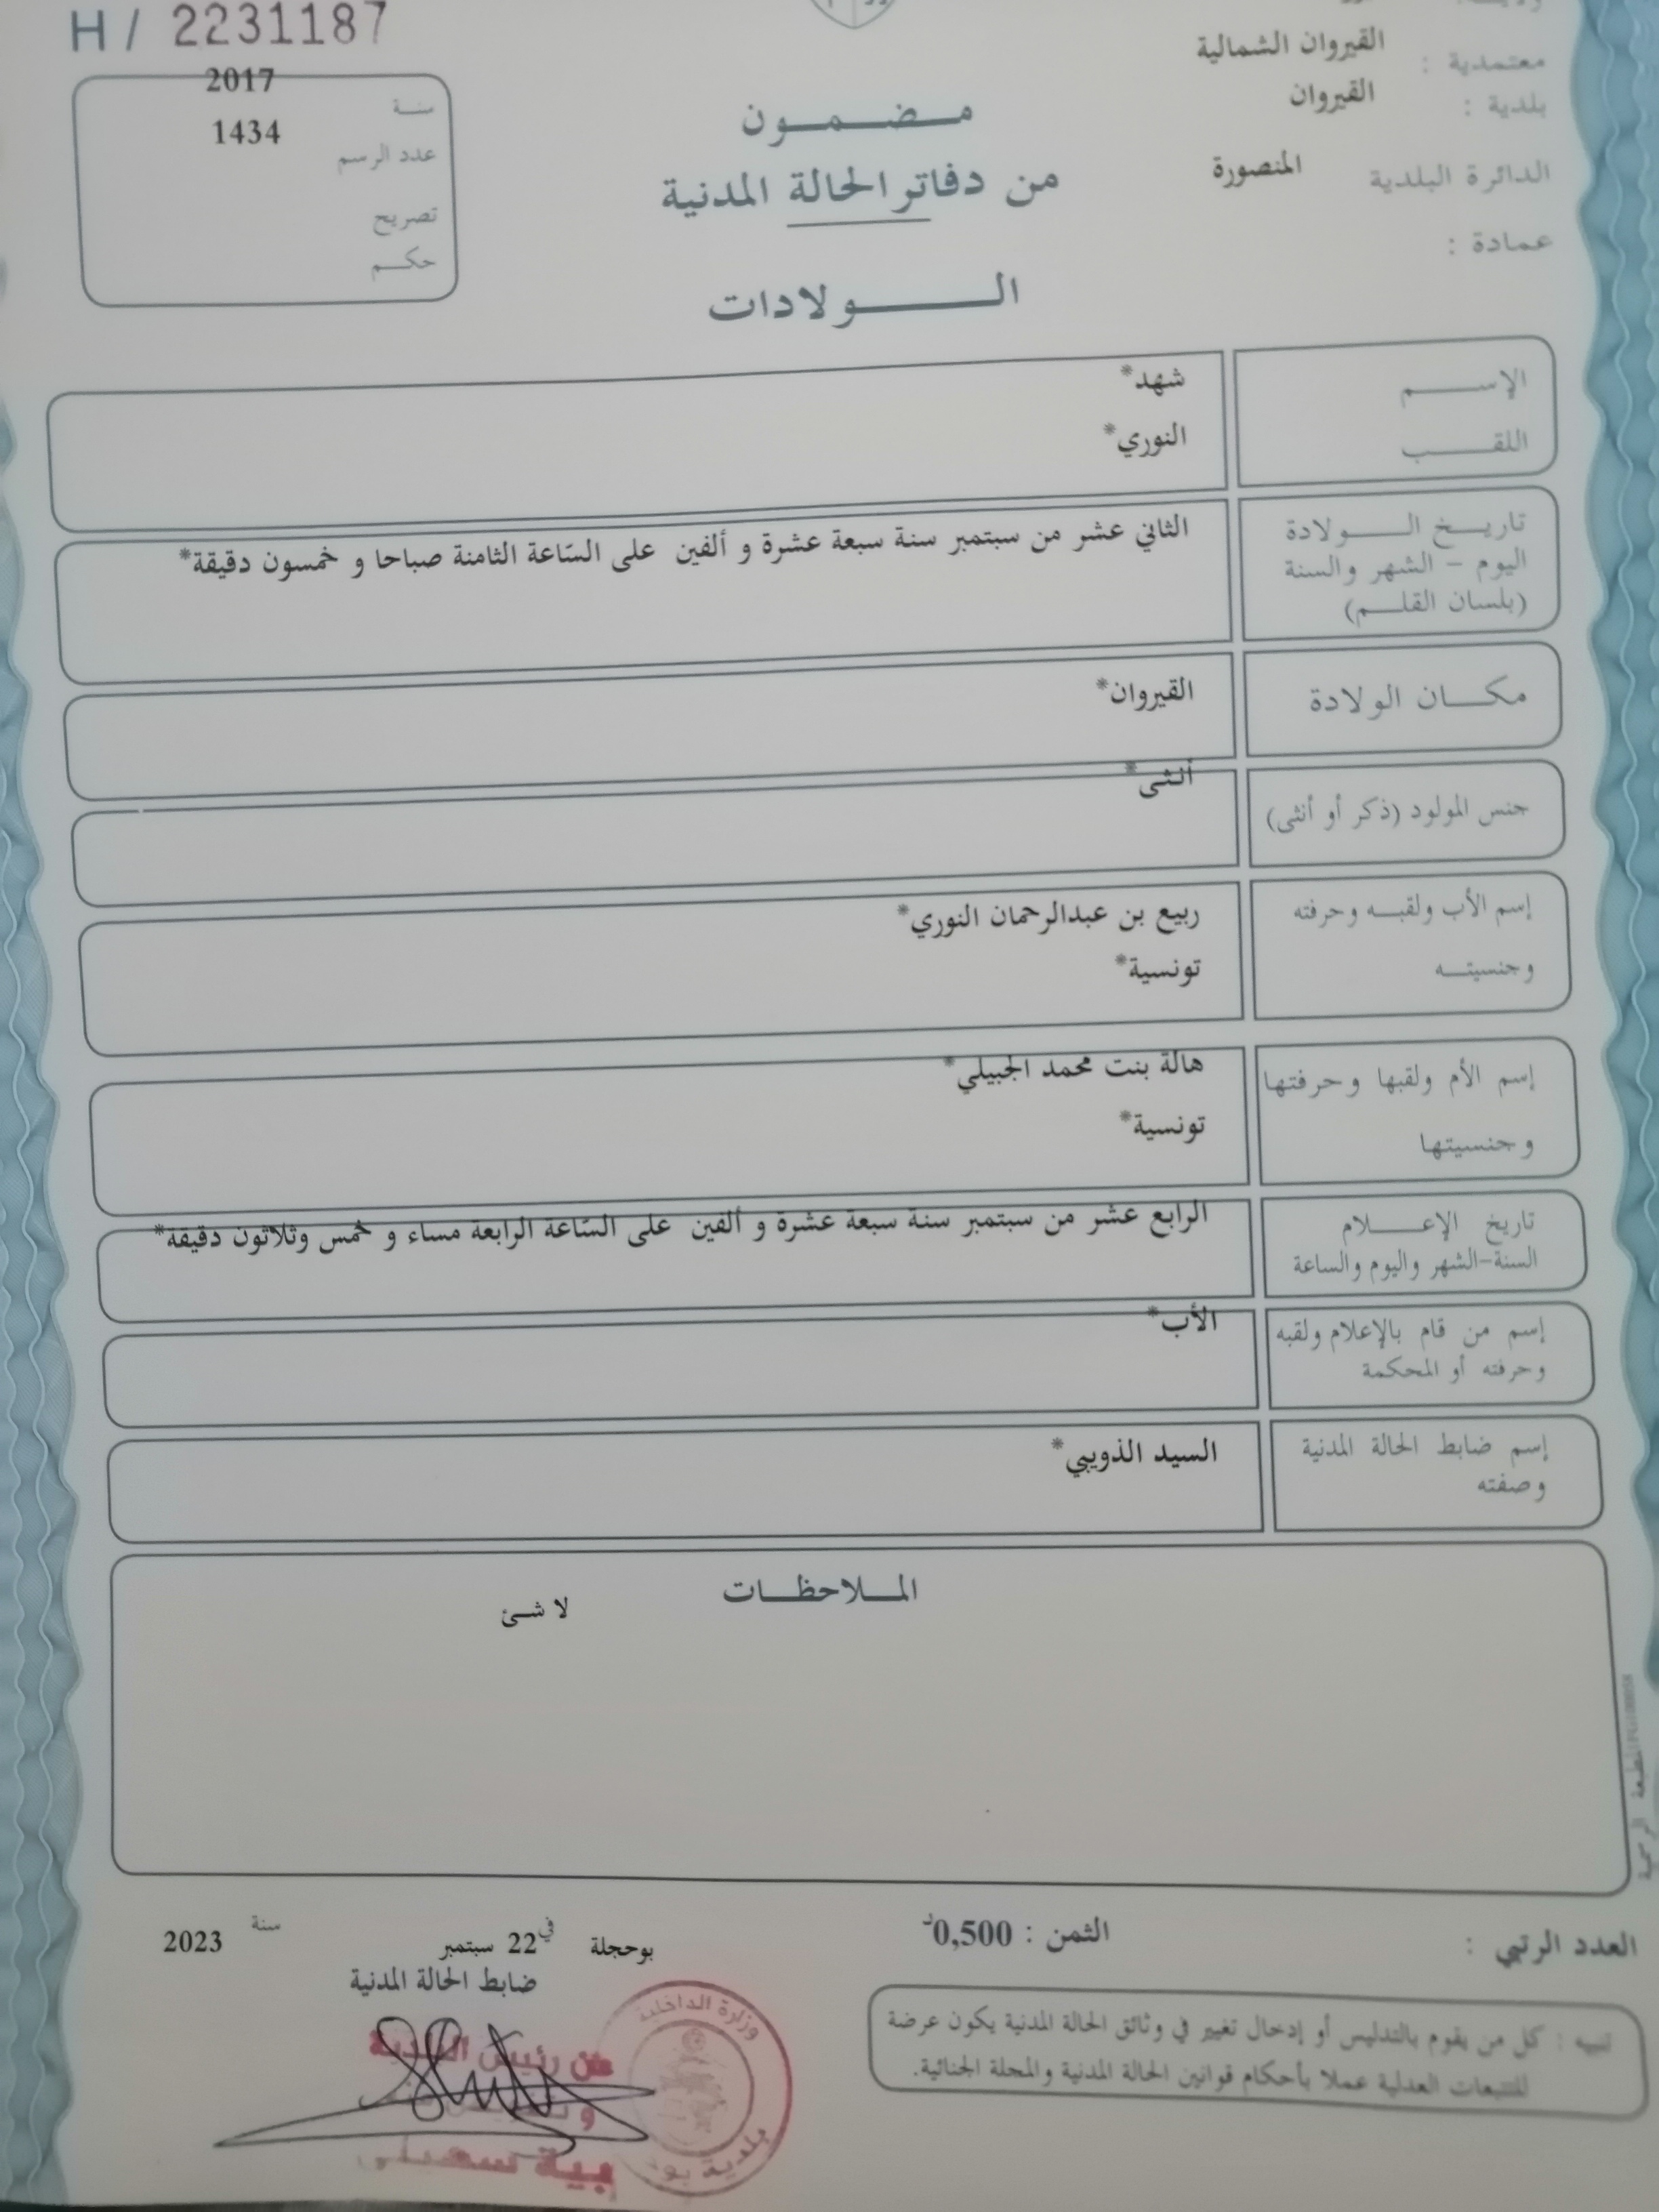 H / 2231187
معتمدية : القيروان الشمالية
بلدية : القيروان
الدائرة البلدية المنصورة
عمادة :
مضمون
من دفاتر الحالة المدنية
الولادات
سنة 2017
عدد الرسم 1434
تصريح
حكم
الإسم شهد*
اللقب النوري*
تاريخ الولادة
اليوم - الشهر والسنة
(بلسان القلم)
الثاني عشر من سبتمبر سنة سبعة عشرة و ألفين على السّاعة الثامنة صباحا و خمسون دقيقة*
مكان الولادة القيروان*
جنس المولود (ذكر أو أنثى) أنثى*
إسم الأب ولقبه وحرفته ربيع بن عبدالرحمان النوري*
وجنسيته تونسية*
إسم الأم ولقبها وحرفتها هالة بنت محمد الجبيلي*
وجنسيتها تونسية*
تاريخ الإعلام
السنة-الشهر واليوم والساعة
الرابع عشر من سبتمبر سنة سبعة عشرة و ألفين على السّاعة الرابعة مساء و خمس وثلاثون دقيقة*
إسم من قام بالإعلام ولقبه
وحرفته أو المحكمة
الأب*
إسم ضابط الحالة المدنية
وصفته
السيد الذويبي*
الملاحظات
لا شئ
العدد الرتبي :
الثمن : 0,500د
بوحجلة في 22 سبتمبر سنة 2023
ضابط الحالة المدنية
تنبيه : كل من يقوم بالتدليس أو إدخال تغيير في وثائق الحالة المدنية يكون عرضة
للتتبعات العدلية عملا بأحكام قوانين الحالة المدنية والمجلة الجنائية.
وزارة الداخلية
بلدية بو
عن رئيس البلدية
المطبعة الرسمية